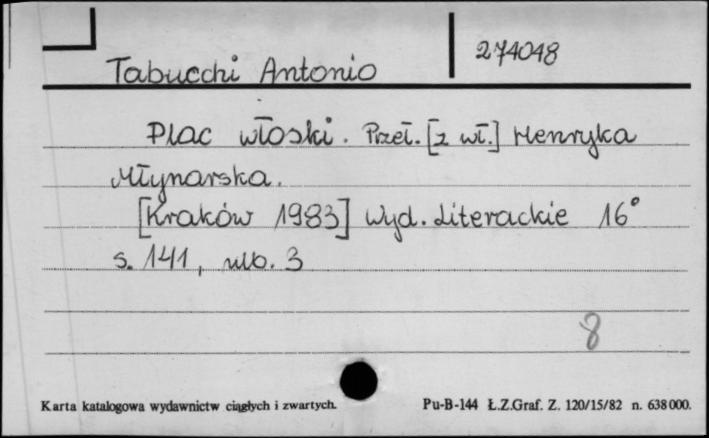 274048
Tabucchi Antonio
Plac włoski. Przeł. [z wł.] Henryka
Młynarska.
[Kraków 1983] Wyd. Literackie 16°
s. 141, nlb. 3
8
Karta katalogowa wydawnictw ciągłych i zwartych.
Pu-B-144 Ł.Z.Graf. Z. 120/15/82 n. 638000.